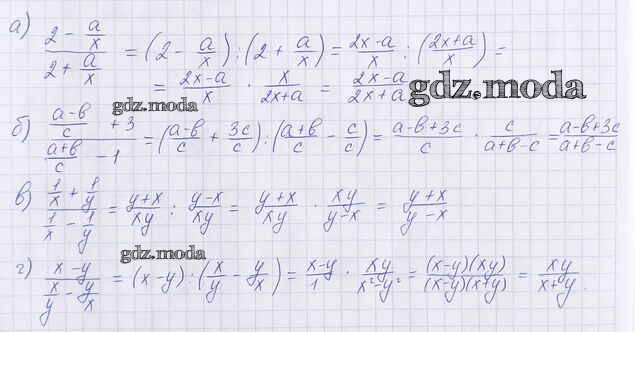 а) (2 - a/x)/(2 + a/x) = (2 - a/x) : (2 + a/x) = (2x-a)/x : ((2x+a)/x) =
= (2x-a)/x · x/(2x+a) = (2x-a)/(2x+a) gdz.moda
gdz.moda
б) ((a-b)/c + 3)/((a+b)/c - 1) = ((a-b)/c + 3c/c) : ((a+b)/c - c/c) = (a-b+3c)/c · c/(a+b-c) = (a-b+3c)/(a+b-c)
в) (1/x + 1/y)/(1/x - 1/y) = (y+x)/xy : (y-x)/xy = (y+x)/xy · xy/(y-x) = (y+x)/(y-x)
gdz.moda
г) (x-y)/(x/y - y/x) = (x-y) : (x/y - y/x) = (x-y)/1 · xy/(x²-y²) = (x-y)(xy)/(x-y)(x+y) = xy/(x+y).